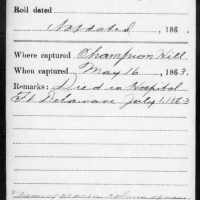 Roll dated
Not dated, 186 .
Where captured Champion Hill
When captured May 16, 1863.
Remarks: Died in Hospital
Ft Delaware July 1 1863